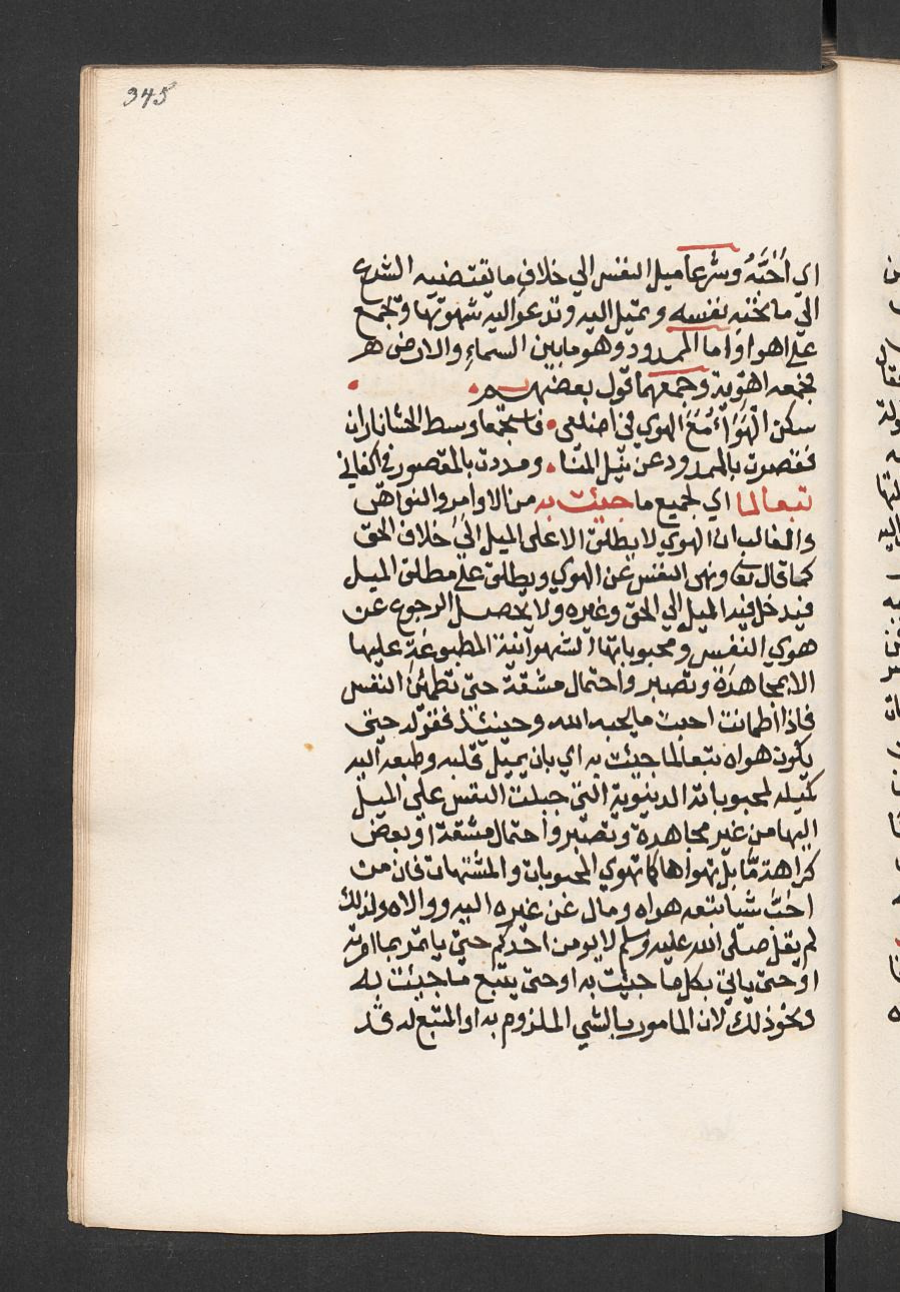 345
اي اُحَبَّهُ وشرعا ميل النفس الي خلاف ما يقتضيه الشرع
الي ما تحبه نفسه وتميل اليه وتدعوا اليه شهوتها وتجمع
علي اهوا واما الممدود وهو ما بين السماء والارض
فجمعه اهوية وجمعهما قول بعضهم
سكن الهَوَاءُ مَعَ الهوي في اضلعي • فاستجمعا وسط الحشا ناران
فقصرت بالممدود عن نيل المنا • ومددت بالمقصور في اكفاني
تبعا لما اي لجميع ما جيئت به من الاوامر والنواهي
والغالب ان الهوي لا يطلق الا علي الميل الي خلاف الحق
كما قال تعالي ونهي النفس عن الهوي ويطلق علي مطلق الميل
فيدخل فيه الميل الي الحق وغيره ولا يحصل الرجوع عن
هوي النفس ومحبوباتها الشهوانية المطبوعة عليها
الا بمجاهدة وتصبر واحتمال مشقة حتي تطمئن النفس
فاذا اطمانت احبت ما يحبه الله وحينئذ فقوله حتي
يكون هواه تبعا لما جيئت به اي بان يميل قلبه وطبعه اليه
كميله لمحبوباته الدنيوية التي جبلت النفس علي الميل
اليها من غير مجاهدة وتصبر واحتمال مشقة او بعض
كراهة مّا بل تهواها كما تهوي المحبوبات والمشتهات فان من
احب شيا تبعه هواه ومال عن غيره اليه ووالاه ولذلك
لم يقل صلي الله عليه وسلم لا يومن احدكم حتي ياتمر بما امرته
او حتي ياتي بكل ما جيئت به او حتي يتبع ما جيئت به
ونحو ذلك لان المامور بالشي الملزوم به او المتبع له قد